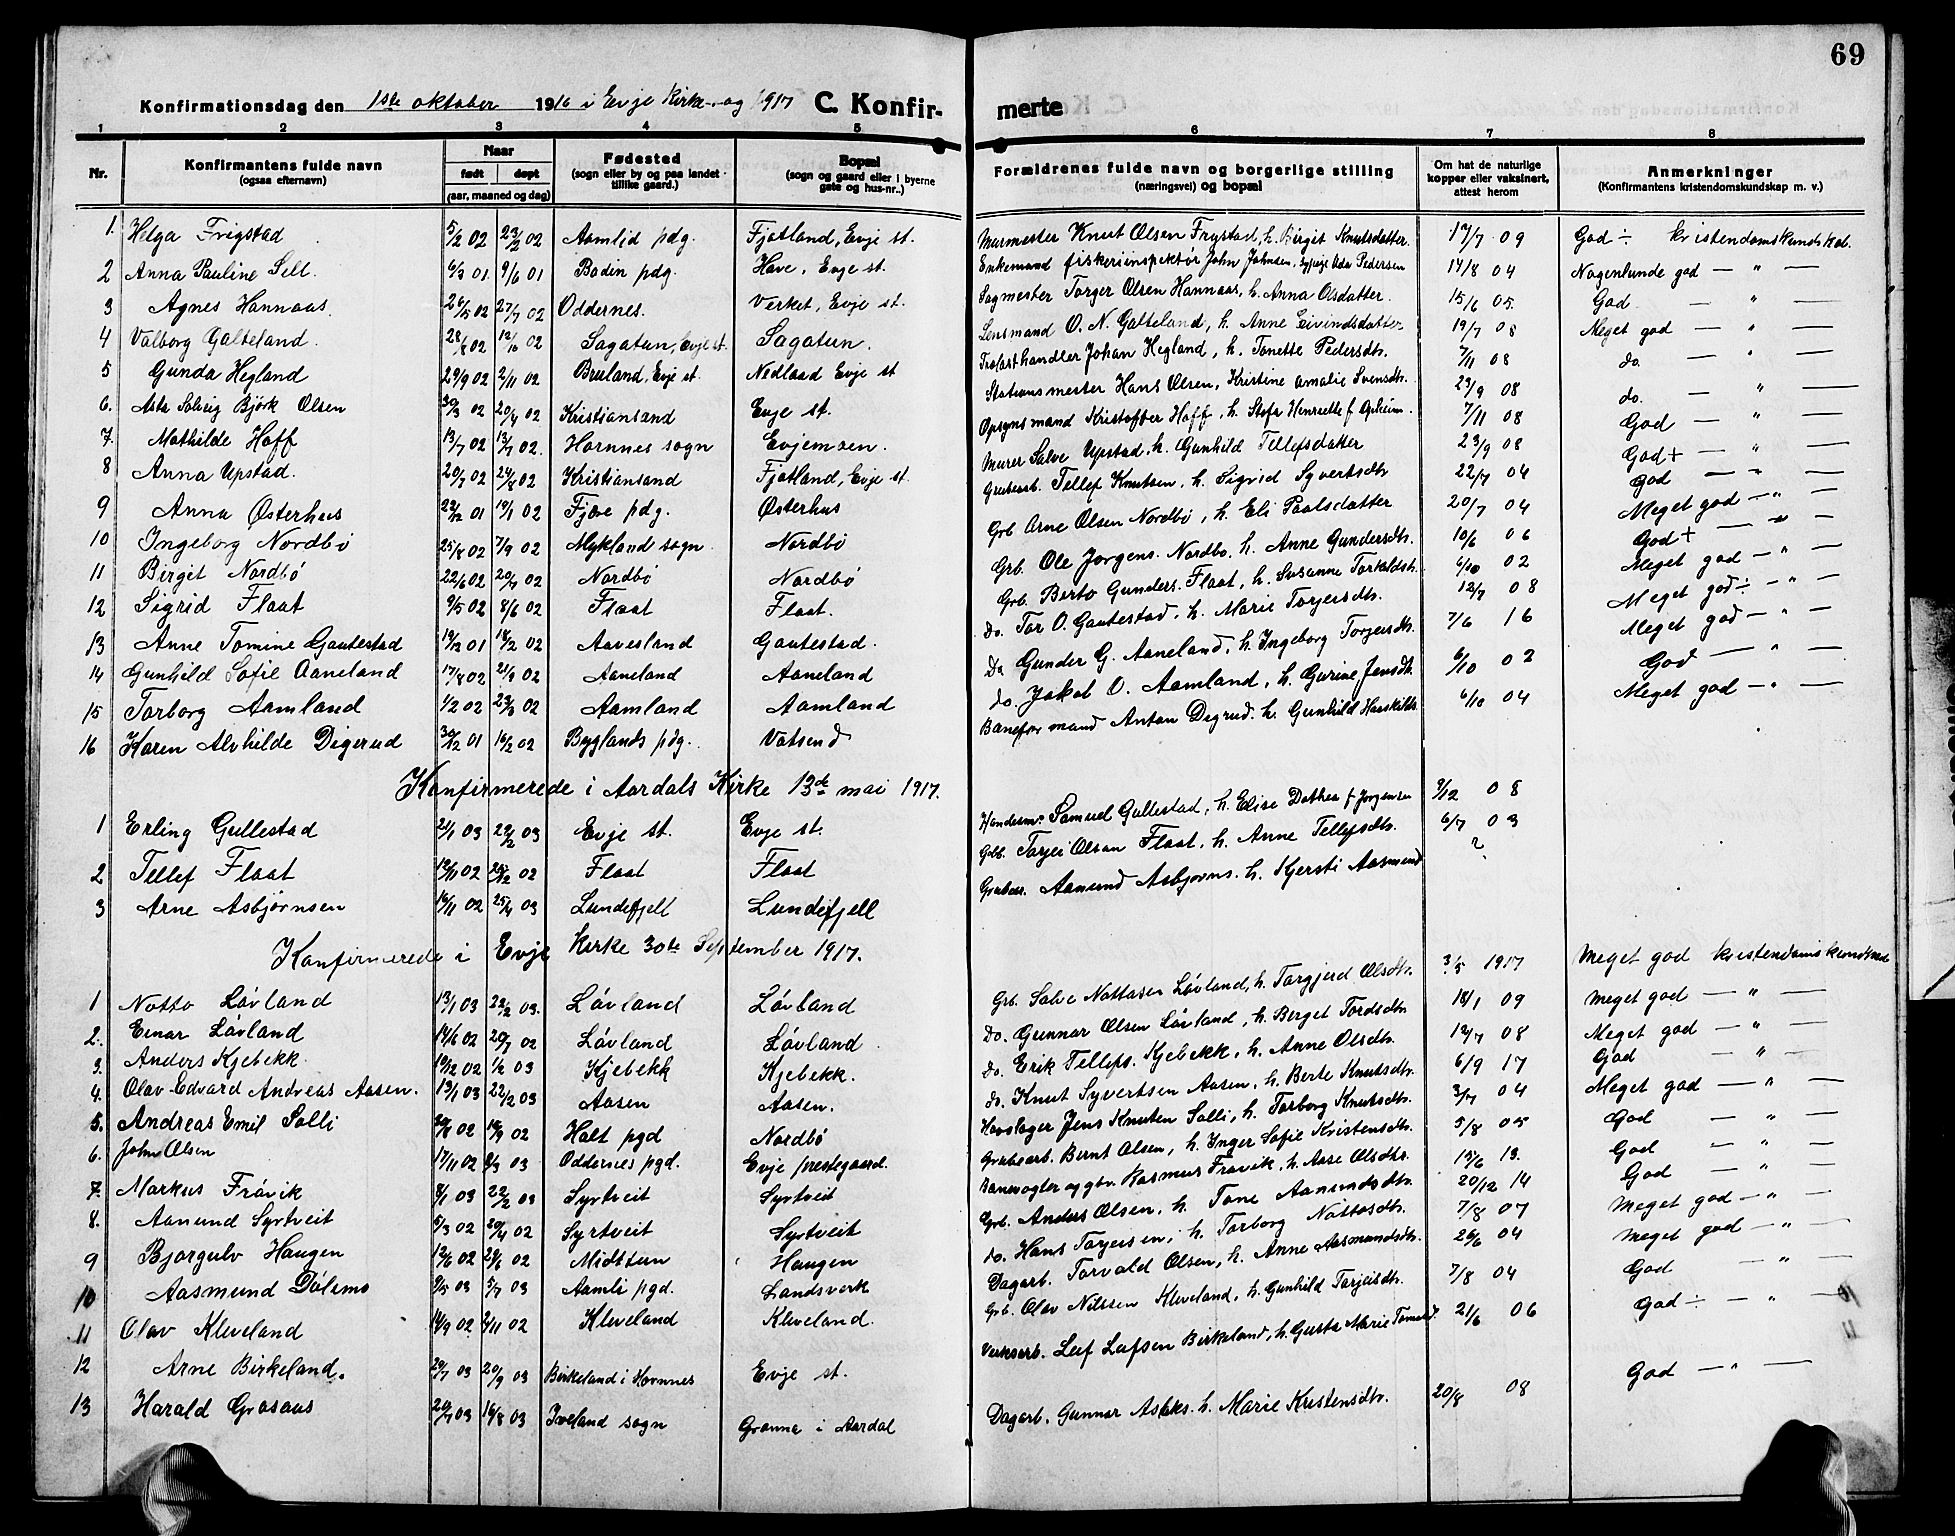 69
Konfirmationsdag den 1ste oktober 1916 i Evje Kirke og 1917 C. Konfirmerte
1 2 3 4 5 6 7 8
Nr. Konfirmantens fulde navn (ogsaa efternavn) Naar født døpt (aar, maaned og dag) Fødested (sogn eller by og paa landet tillike gaard.) Bopæl (sogn og gaard eller i byerne gate og hus-nr.) Forældrenes fulde navn og borgerlige stilling (næringsvei) og bopæl Om hat de naturlige kopper eller vaksinert, attest herom Anmerkninger (Konfirmantens kristendomskundskap m. v.)
1. Helga Frigstad 5/2 02 23/2 02 Aamlid pdg. Fjotland, Evje st. Murmester Knut Olsen Frystad, h. Birgit Knutsdatter. 17/7 09 God ÷ kristendomskundskab.
2 Anna Pauline Sell. 6/3 01 9/6 01 Bodin pdg. Have, Evje st. Enkemand fiskeriinspektør John Johnsen, Pedersen 14/8 04 Nogenlunde god — " —
3 Agnes Hannaas. 26/5 02 27/7 02 Oddernes. Verket, Evje st. Sagmester Torger Olsen Hannaas, h. Anna Olsdatter. 15/6 05. God. — " —
4 Valborg Galteland. 28/8 02 12/10 02 Sagatun, Evje st. Sagatun. Lensmand O. N. Galteland, h. Anne Eivindsdatter 19/7 08 Meget god — " —
5 Gunda Hegland 29/9 02 2/11 02 Bruland, Evje st. Nedlaad Evje st Trælasthandler Johan Hegland, h. Tonette Pedersdtr. 7/11 08 do. — " —
6. Asta Solveig Bjørk Olsen 30/3 02 20/4 02 Kristiansand Evje st. Stationsmester Hans Olsen, Kristine Amalie Svensdtr. 23/9 08 do. — " —
7. Mathilde Hoff 13/7 02 13/7 02. Hornnes sogn Evjemoen. Opsynsmand Kristoffer Hoff, h. Henriette f. Opheim. 7/11 08 God — "
8 Anna Upstad. 20/7 02 24/8 02 Kristiansand Fjotland, Evje st. Murer Salve Upstad, h. Gunhild Tellefsdatter 23/9 08 God + — " —
9 Anna Østerhus 22/12 01 19/1 02 Fjære pdg. Østerhus Grubearb. Tellef Knutsen, h. Sigrid Syvertsdtr 22/7 04 God — " —
10 Ingeborg Nordbø 25/8 02 7/9 02 Mykland sogn. Nordbø Grb. Arne Olsen Nordbø, h. Eli Paalsdatter 20/7 04 Meget god — " —
11 Birgit Nordbø 22/6 02 20/7 02 Nordbø Nordbø Grb. Ole Jorgens. Nordbo. h. Anne Gundersdtr. 10/6 06 God + — " —
12 Sigrid Flaat 9/5 02 8/6 02 Flaat Flaat. Grb. Berto Gunders. Flaat, h. Susanne Torkeldsdtr. 6/10 02 Meget god — " —
13 Anne Tomine Gautestad 19/12 01 18/2 02 Aavesland Gautestad. do. Tor O. Gautestad, h. Marie Torjersdtr. 12/7 08 Meget god ÷ — " —
14 Gunhild Sofie Aaneland 17/8 02 21/9 02 Aaneland Aaneland Do Gunder G. Aaneland, h. Ingeborg Torjersdtr. 7/6 16 Meget god — " —
15 Torborg Aamland 1/2 02 23/3 02 Aamland Aamland do. Jakob O. Aamland, h. Gurine Jensdtr. 6/10 02 God — " —
16 Karen Alvhilde Digerud 30/12 01 16/2 02 Byglands pdg. Vatsend Baneformand Anton Digrud. h. Gunhild 6/10 04 Meget god — " —
Konfirmerede i Aardals Kirke 13de mai 1917.
1 Erling Gullestad 21/1 03 22/2 03 Evje st. Evje st. Handesm. Samuel Gullestad, h. Elise Dothea f. Jorgensen 9/12 08
2 Tellef Flaat 12/11 02 26/12 02 Flaat Flaat Gbb. Torjei Olsen Flaat, h. Anne Tellefsdtr. 6/7 03
3 Arne Asbjørnsen 16/11 02 25/4 03 Lundefjell Lundefjell Grubear. Aamund Asbjorns. h. Kjersti Aasmund ?
Konfirmerede i Evje Kirke 30te September 1917.
1 Notto Løvland 13/1 03 22/2 03. Løvland Løvland Grb. Salve Nottosen Løvland, h. Torgjerd Olsdtr. 3/5 1917 Meget god kristendomskundskab
2. Einar Løvland 14/6 02 20/7 02 Løvland Løvland. Do. Gunnar Olsen Løvland, h. Berget Tordsdtr 18/1 09 Meget god — " —
3. Anders Kjebekk. 19/12 02 1/2 03 Kjebekk Kjebekk. do. Erik Tellefs. Kjebekk, h. Anne Olsdtr. 12/7 08 Meget god — " —
4. Olav Edvard Andreas Aasen. 13/1 03 22/2 03 Aasen Aasen. do. Knut Syvertsen Aasen, h. Berte Knutsdtr. 6/9 17 God — " —
5. Andreas Emil Solli 20/8 02 18/9 02 Holt pgd Nordbø Hovslager Jens Knuten Solli, h. Torborg Knutsdtr. 3/7 04 Meget god — " —
6. John Olsen 17/11 02 8/3 03 Oddernes pgd. Evje prestegaard. Grubearb. Bernt Olsen, h. Inger Sofie Kristensdtr. 5/8 05 God — " —
7. Markus Frøvik 8/1 03 22/2 03 Syrtveit Syrtveit Banevogter og gbr. Rasmus Frøvik, h. Aase Olsdtr. 19/6 13. God — " —
8. Aanund Syrtveit 5/3 02 20/4 02 Syrtveit Syrtveit Grb. Anders Olsen, h. Tone Aanundsdtr. 20/12 14 God — " —
9 Bjorgulv Haugen 12/6 02 29/6 02 Midttun Haugen do. Hans Torjersen, h. Torborg Nottosdtr. 7/8 07 Meget god — " —
10 Aasmund Dølemo 9/5 03 5/7 03 Aamli pgd. Landsverk Dagarb. Torvald Olsen, h. Anne Aasmundsdtr. 26/6 04 Meget god — " —
11 Olav Kleveland 14/9 02 2/11 02 Kleveland Kleveland. Grb. Olav Nilssen Kleveland, h. Gunhild Torjeisdtr. 7/8 04 God — " —
12 Arne Birkeland. 29/7 03 20/9 03 Birkeland i Hornnes Evje st. Verksarb. Leif Leifsen Birkeland, h. Gusta Marie 21/6 06 God ÷ — " —
13 Harald Grosaas 20/7 03 16/8 03 Iveland sogn Gronna i Aardal Dagarb. Gunnar Aslaks. h. Marie Kristensdtr. 20/8 08 God — " —